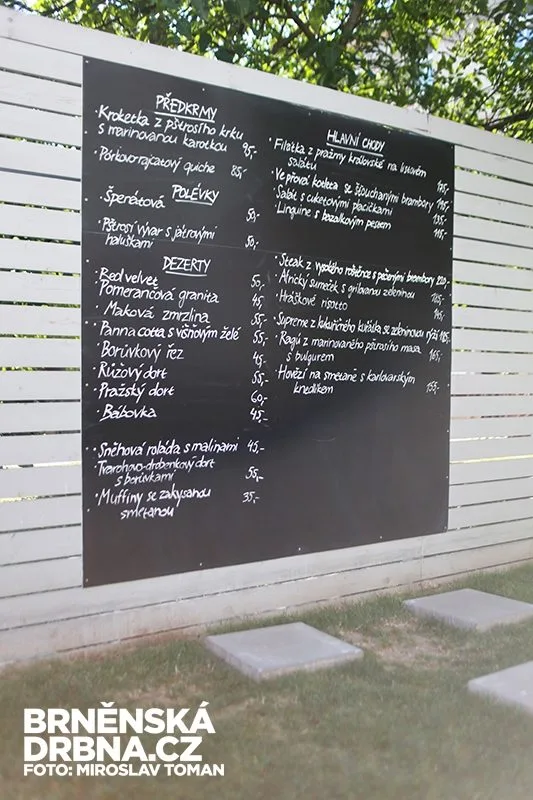 PŘEDKRMY
· Kroketka z pštrosího krku
s marinovanou karotkou 95,-
· Pórkovorajčatový quiche 85,-
POLÉVKY
· Špenátová 50,-
· Pštrosí vývar s játrovými
haluškami 50,-
DEZERTY
· Red velvet 50,-
Pomerančová granita 45,-
· Maková zmrzlina 55,-
· Panna cotta s višňovým želé 55,-
· Borůvkový řez 45,-
· Růžový dort 55,-
· Pražský dort 60,-
· Bábovka 45,-
· Sněhová roláda s malinami 45,-
· Tvarohovo-drobenkový dort
s borůvkami 55,-
· Muffiny se zakysanou 35,-
smetanou
HLAVNÍ CHODY
· Filátka z pražmy královské na listovém
salátu
· Vepřová kotleta se šťouchanými brambory
· Salát s cuketovými plackami
· Linguine s bazalkovým pestem
· Steak z vysokého roštěnce s pečenými brambory 220,-
· Africký sumeček s grilovanou zeleninou
· Hráškové risotto
· Supreme z kukuřičného kuřátka se zeleninovou rýží
· Ragú z marinovaného pštrosího masa
s bulgurem 165,-
· Hovězí na smetaně s karlovarským
knedlíkem 155,-
BRNĚNSKÁ
DRBNA.CZ
FOTO: MIROSLAV TOMAN